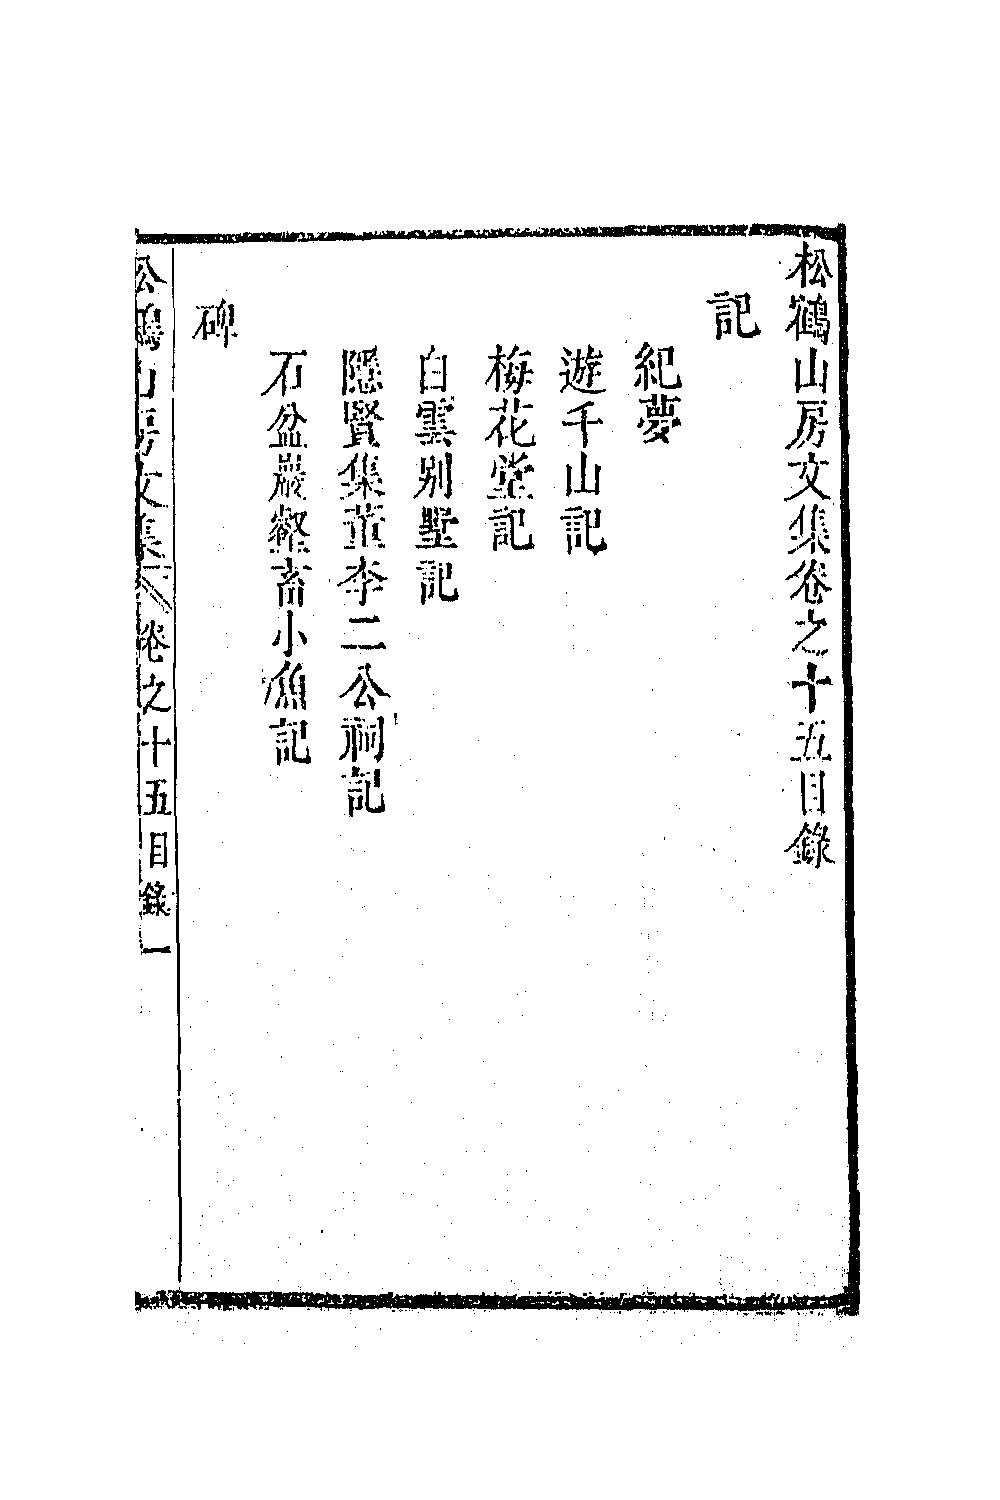 松鶴山房文集卷之十五目錄
記
紀夢
遊千山記
梅花堂記
白雲别墅記
隱賢集董李二公祠記
石盆巖壑畜小魚記
碑
松鶴山房文集 卷之十五目錄 一